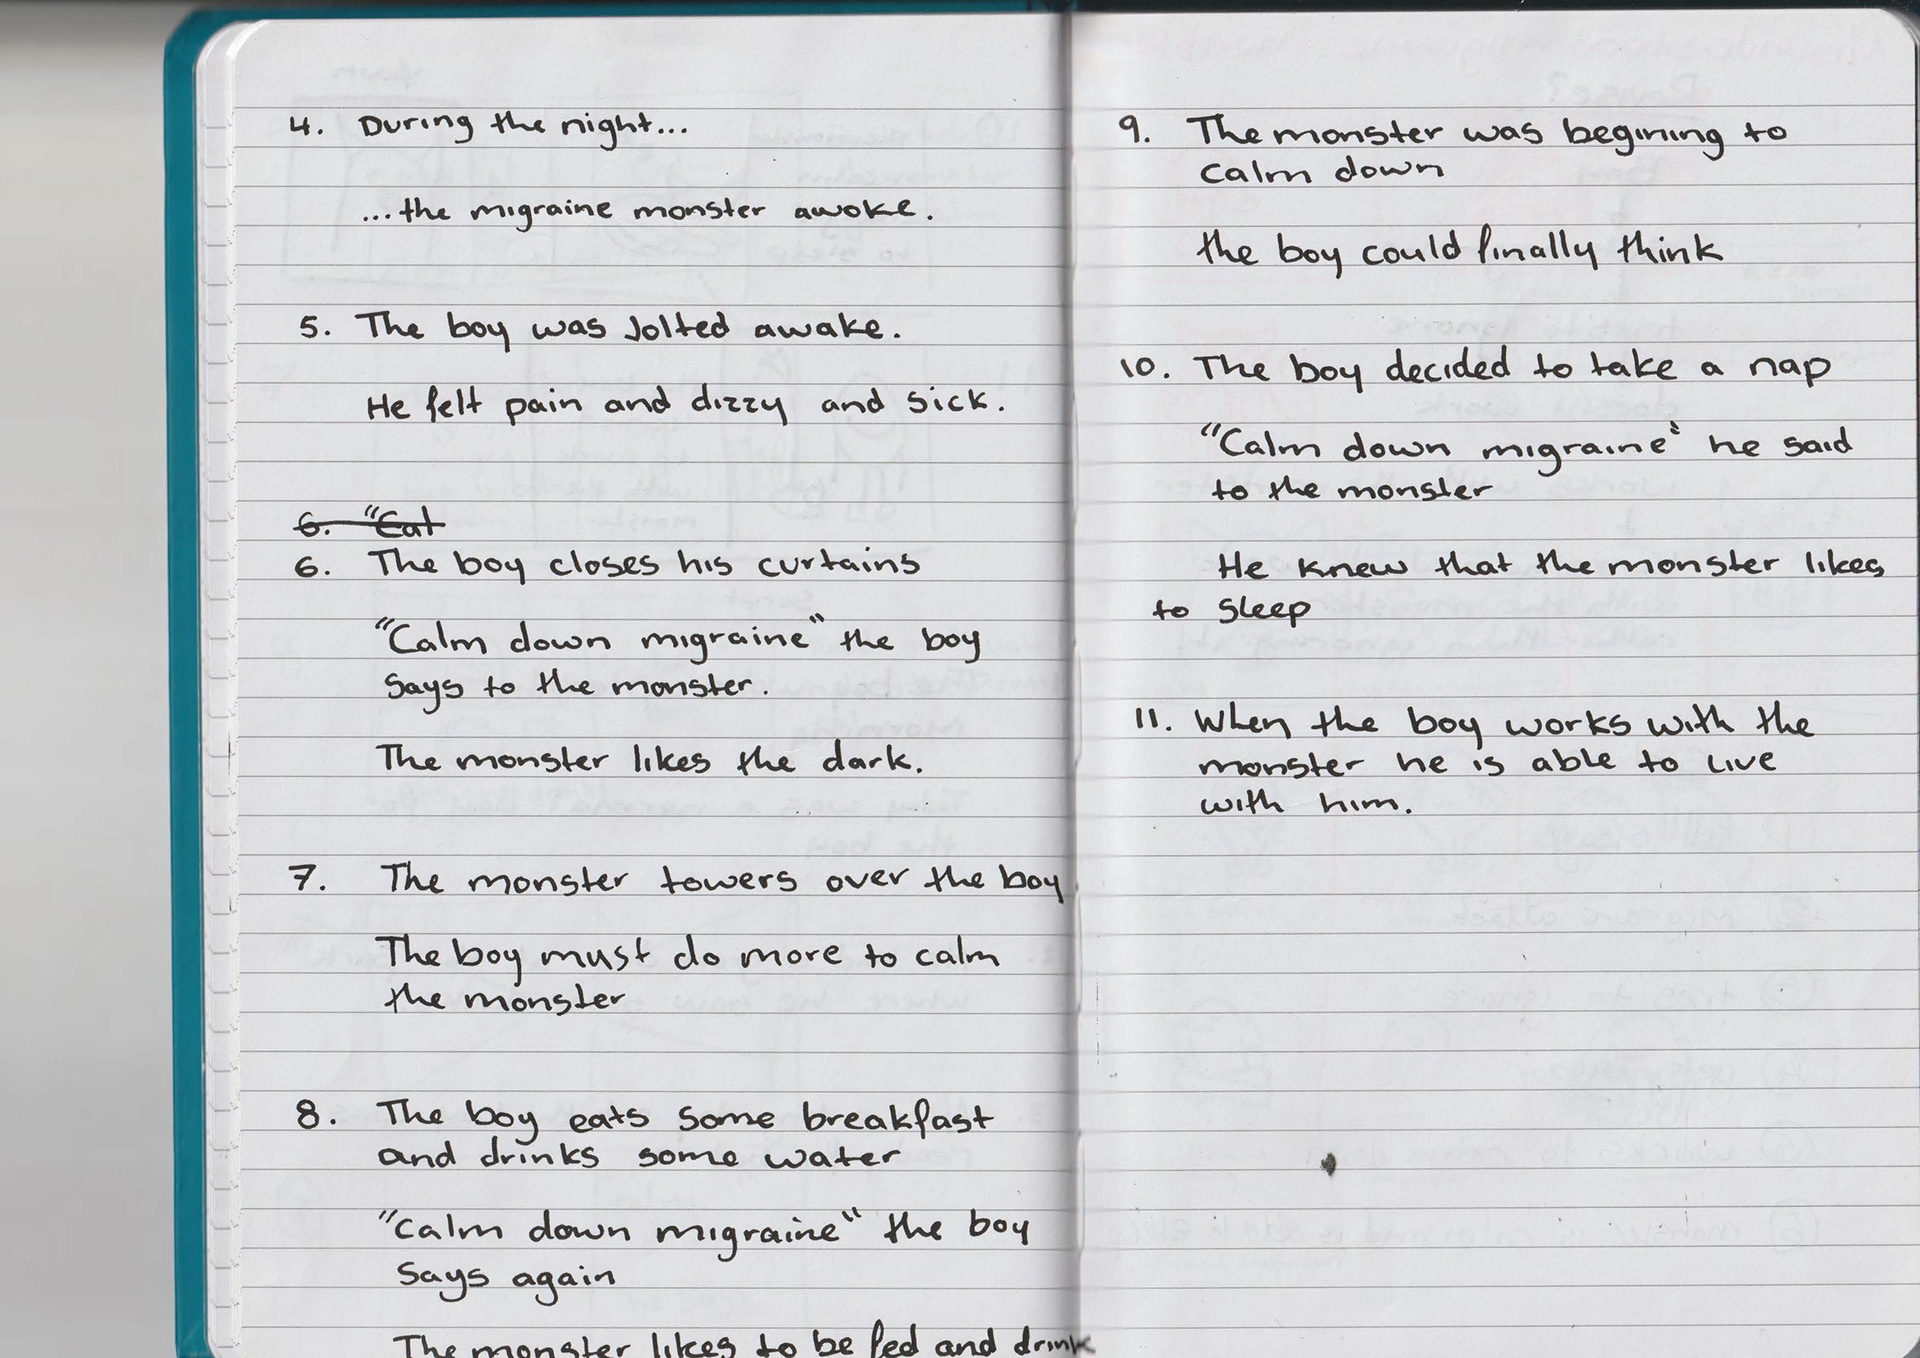 4. During the night...
...the migraine monster awoke.
5. The boy was jolted awake.
He felt pain and dizzy and sick.
6. "Eat
6. The boy closes his curtains
"Calm down migraine" the boy
says to the monster.
The monster likes the dark.
7. The monster towers over the boy
The boy must do more to calm
the monster
8. The boy eats some breakfast
and drinks some water
"calm down migraine" the boy
says again
The monster likes to be fed and drink
9. The monster was begining to
calm down
the boy could finally think
10. The boy decided to take a nap
"Calm down migraine" he said
to the monster
He knew that the monster likes
to sleep
11. When the boy works with the
monster he is able to live
with him.